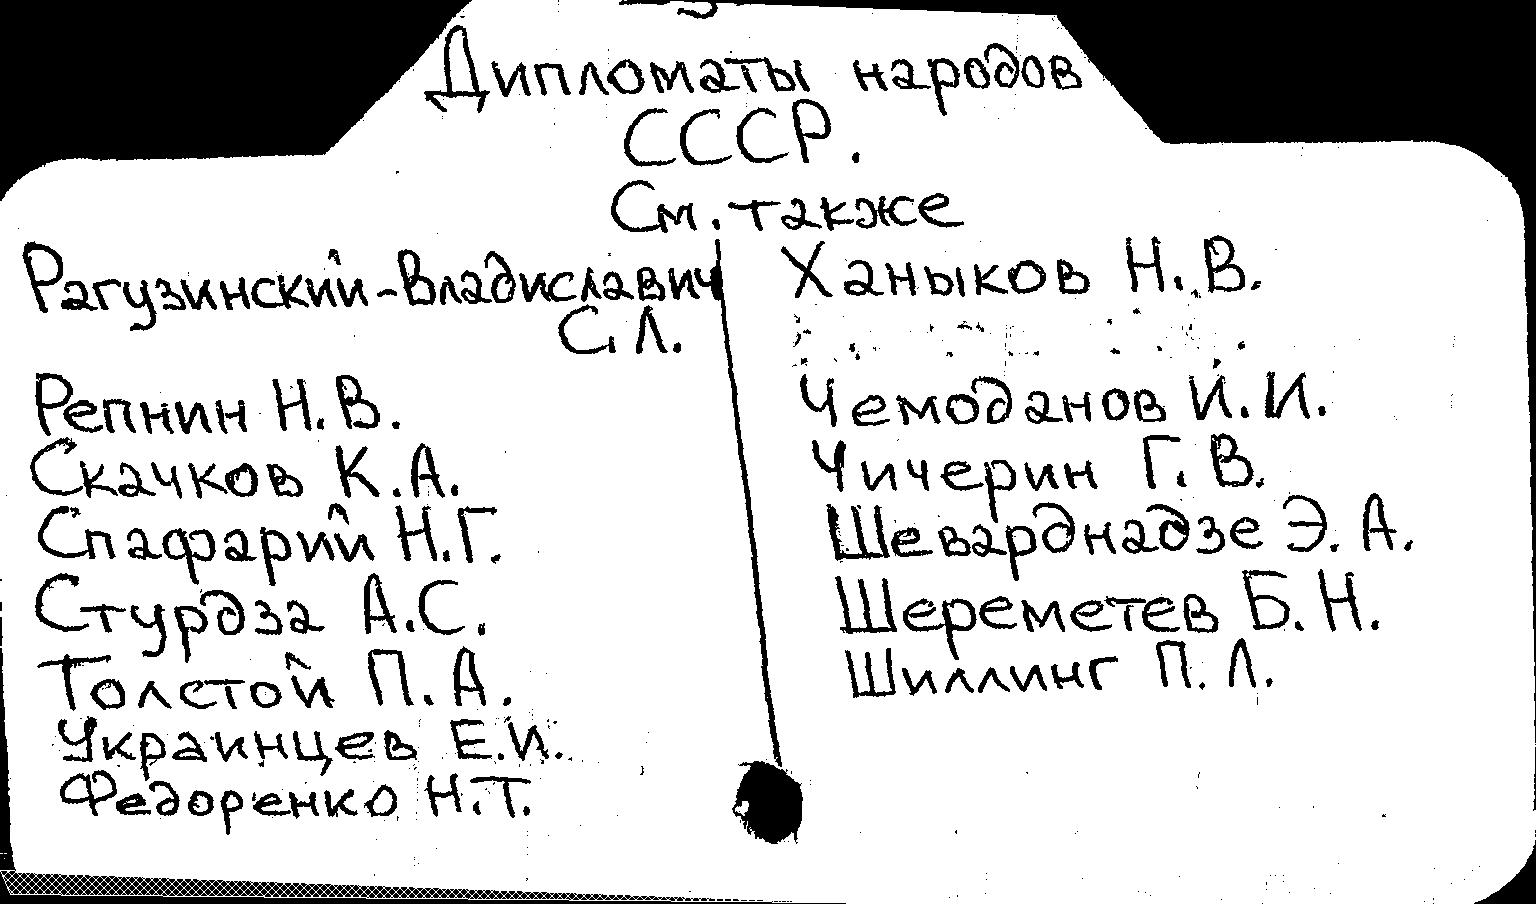 Дипломаты народов
СССР.
См. также
Рагузинский-Владиславич
С.Л.
Репнин Н.В.
Скачков К.А.
Спафарий Н.Г.
Стурдза А.С.
Толстой П.А.
Украинцев Е.И.
Федоренко Н.Т.
Ханыков Н.В.
Чемоданов И.И.
Чичерин Г.В.
Шеварднадзе Э.А.
Шереметев Б.Н.
Шиллинг П.Л.